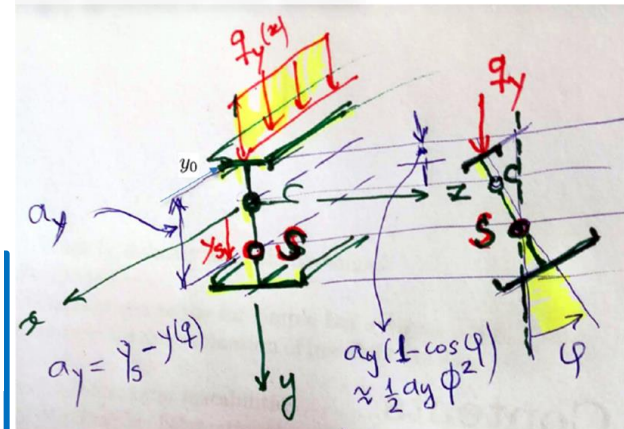 q_y(x)
q_y
y0
C
C
z
a_y
y_s
S
S
x
a_y = y_s - y(q)
a_y(1-cosφ)
≈ ½ a_y ϕ²
φ
y